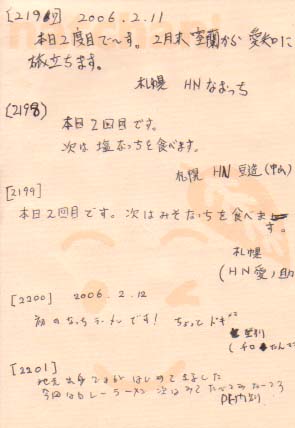 [2197] 2006.2.11
本日2度目で〜す。2月末室蘭から愛知に
旅立ちます。
札幌 HN なおっち
[2198]
本日2回目です。
次は塩なっちを食べます。
札幌 HN 豆造(中山)
[2199]
本日2回目です。次はみそなっちを食べま
す。
札幌
(HN 愛ノ助)
[2200] 2006.2.12
初のなっちラーメンです! ちょっとドキ²
登別
[2201]
地元
はじめてきました
今回はカレーラーメン 次は